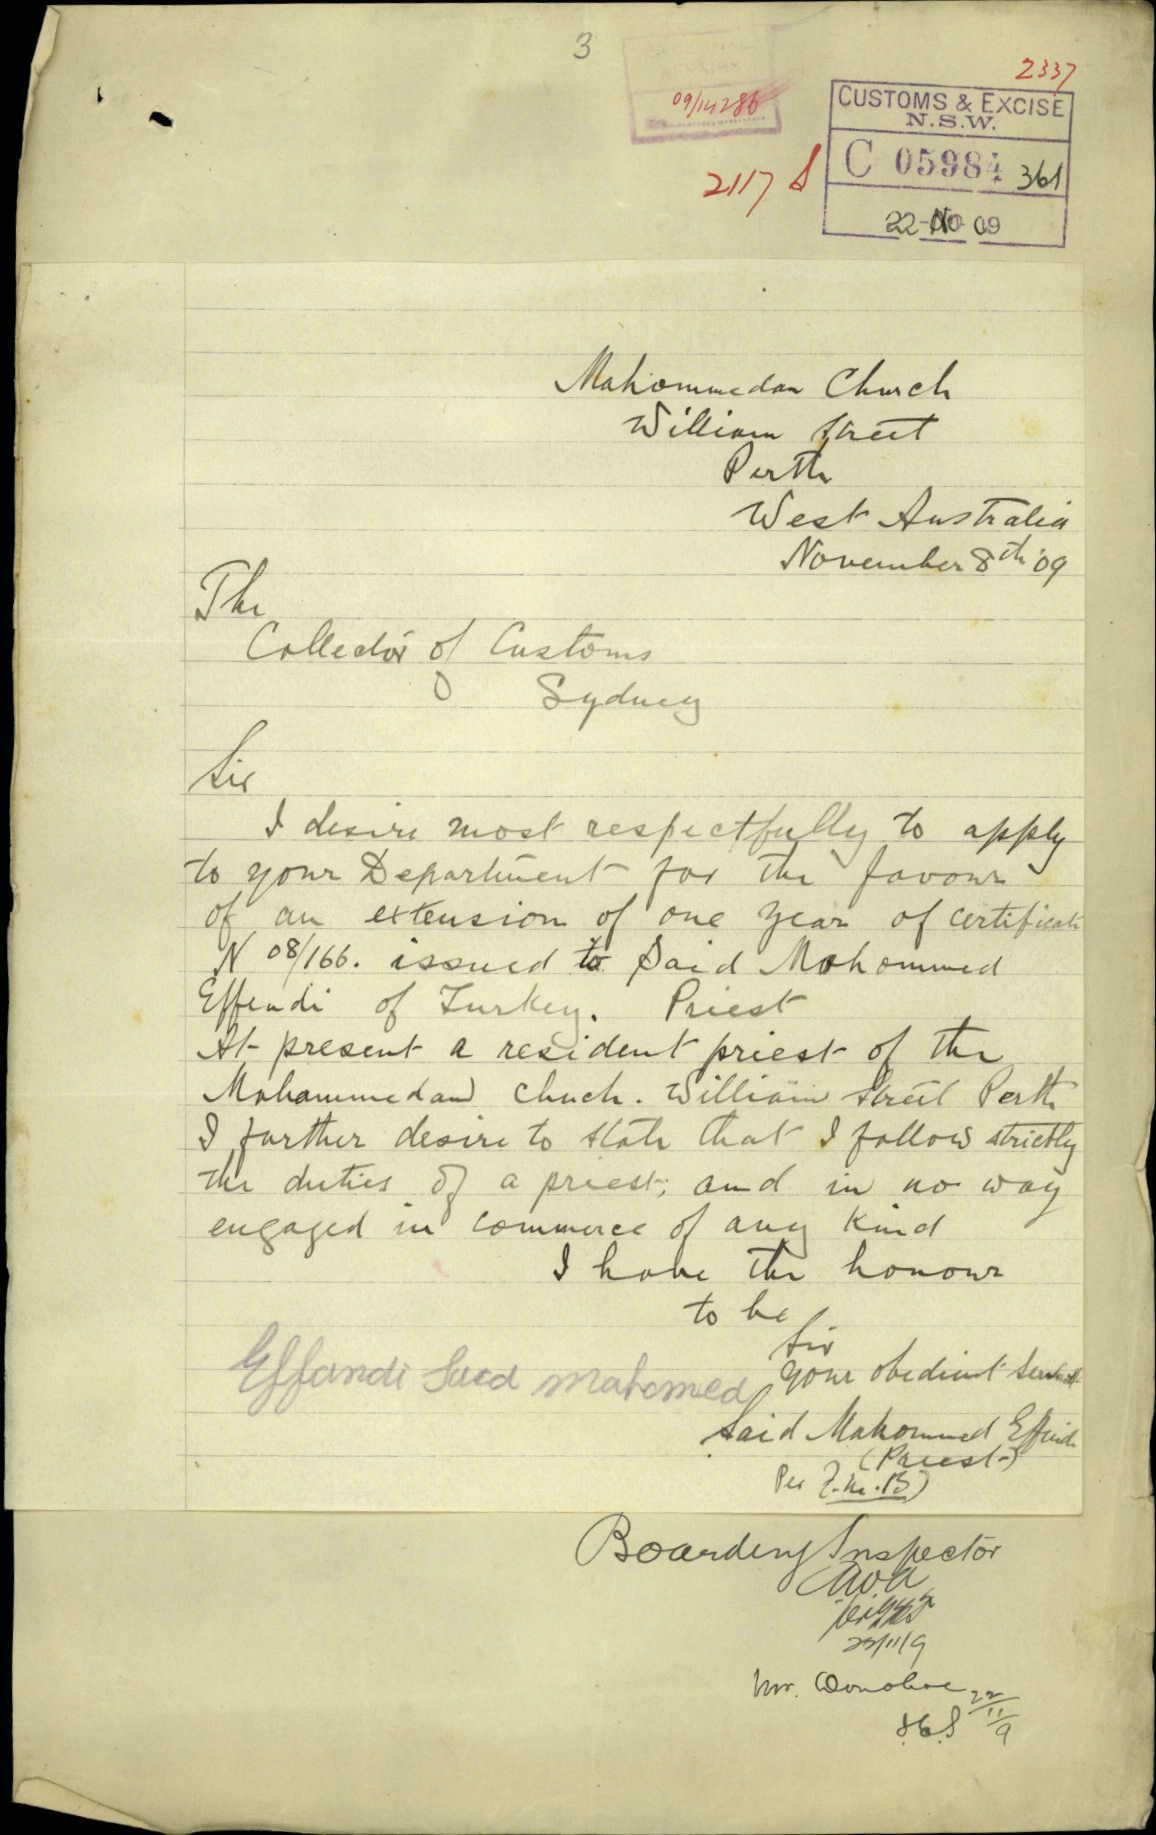 3
2337
09/14286
CUSTOMS & EXCISE
N.S.W.
C 05984 361
2117 S
22 NO 09
Mahommedan Church
William Street
Perth
West Australia
November 8th 09
The
Collector of Customs
Sydney
Sir
I desire most respectfully to apply
to your Department for the favour
of an extension of one year of certificate
N 08/166. issued to Said Mohommed
Effendi of Turkey. Priest
At present a resident priest of the
Mohammedan Chuch. William Street Perth
I further desire to state that I follow strictly
the duties of a priest; and in no way
engaged in commerce of any kind
I have the honour
to be
Sir
your obedient servant
Effandi Saed mahomed
Said Mahommed Effendi
(Priest)
Per
Boarding Inspector
22/11/9
Mr. Donohoe 22/11/9